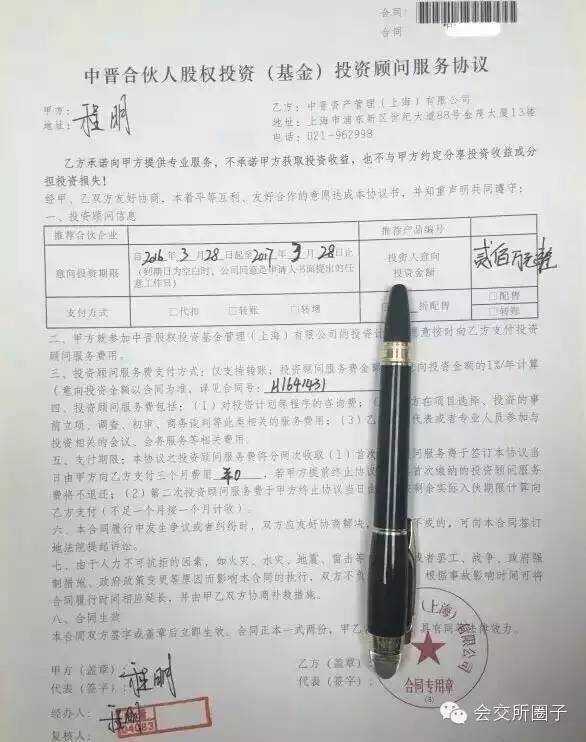 合同:
合同
中晋合伙人股权投资（基金）投资顾问服务协议
甲方： 程明
地址：
乙方：中晋资产管理（上海）有限公司
地址：上海市浦东新区世纪大道88号金茂大厦13楼
电话：021-962998
乙方承诺向甲方提供专业服务，不承诺甲方获取投资收益，也不与甲方约定分享投资收益或分
担投资损失！
经甲、乙双方友好协商，本着平等互利、友好合作的意愿达成本协议书，并郑重声明共同遵守：
一、投资顾问信息
推荐合伙企业 推荐产品编号
意向投资期限 自2016年3月28日起至2017年3月28日止
(到期日为空白时，公司同意是申请人书面提出的任
意工作日)
投资人意向
投资金额
贰佰万元整
支付方式 □代扣 □转账 □转增 折配售 □配售
□转账
二、甲方就参加中晋股权投资基金管理（上海）有限公司的投资计 愿意按时向乙方支付投资
顾问服务费用。
三、投资顾问服务费支付方式：仅支持转账；投资顾问服务费金额 向投资金额的1%/年计算
（意向投资金额以合同为准，详见合同号：H1641431
四、投资顾问服务费包括：（1）对投资计划等程序的咨询费；（ 方在项目选择、投资的事
前立项、调查、初审、商务谈判等此类相关的服务费用；（3）乙 代表或者专业人员参加与
投资相关的会议、会务服务等相关费用。
五、支付期限：本协议之投资顾问服务费将分两次收取（1）首次 问服务费于签订本协议当
日由甲方向乙方支付三个月费用 ¥0 ，若甲方提前终止协议 首次缴纳的投资顾问服务
费将不退还；（2）第二次投资顾问服务费于甲方终止协议当日由 按剩余实际入伙期限计算向
乙方支付（不足一个月按一个月计收）。
六、本合同履行中发生争议或者纠纷时，双方应友好协商解决， 不成的，可向本合同签订
地法院提起诉讼。
七、由于人力不可抗拒的因素，如火灾、水灾、地震、雷击等 或者罢工、战争、政府强
制措施、政府政策变更等原因而影响本合同的执行，双方不负 根据事故影响时间可将
合同履行时间相应延长，并由甲乙双方协商补救措施。
八、合同生效
本合同双方签字或盖章后立即生效。合同正本一式两份，甲乙 具有同等法律效力。
甲方（盖章）：
代表（签字）：程明
经办人：程明
复核人：
04083
乙方（盖章
代表（签字
（上海）有限公司
合同专用章
(4)
会交所圈子